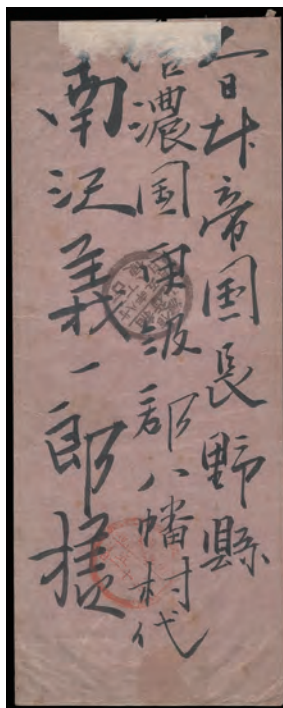 大日本帝国長野縣
信濃国更級郡八幡村代
南沢義一郎様